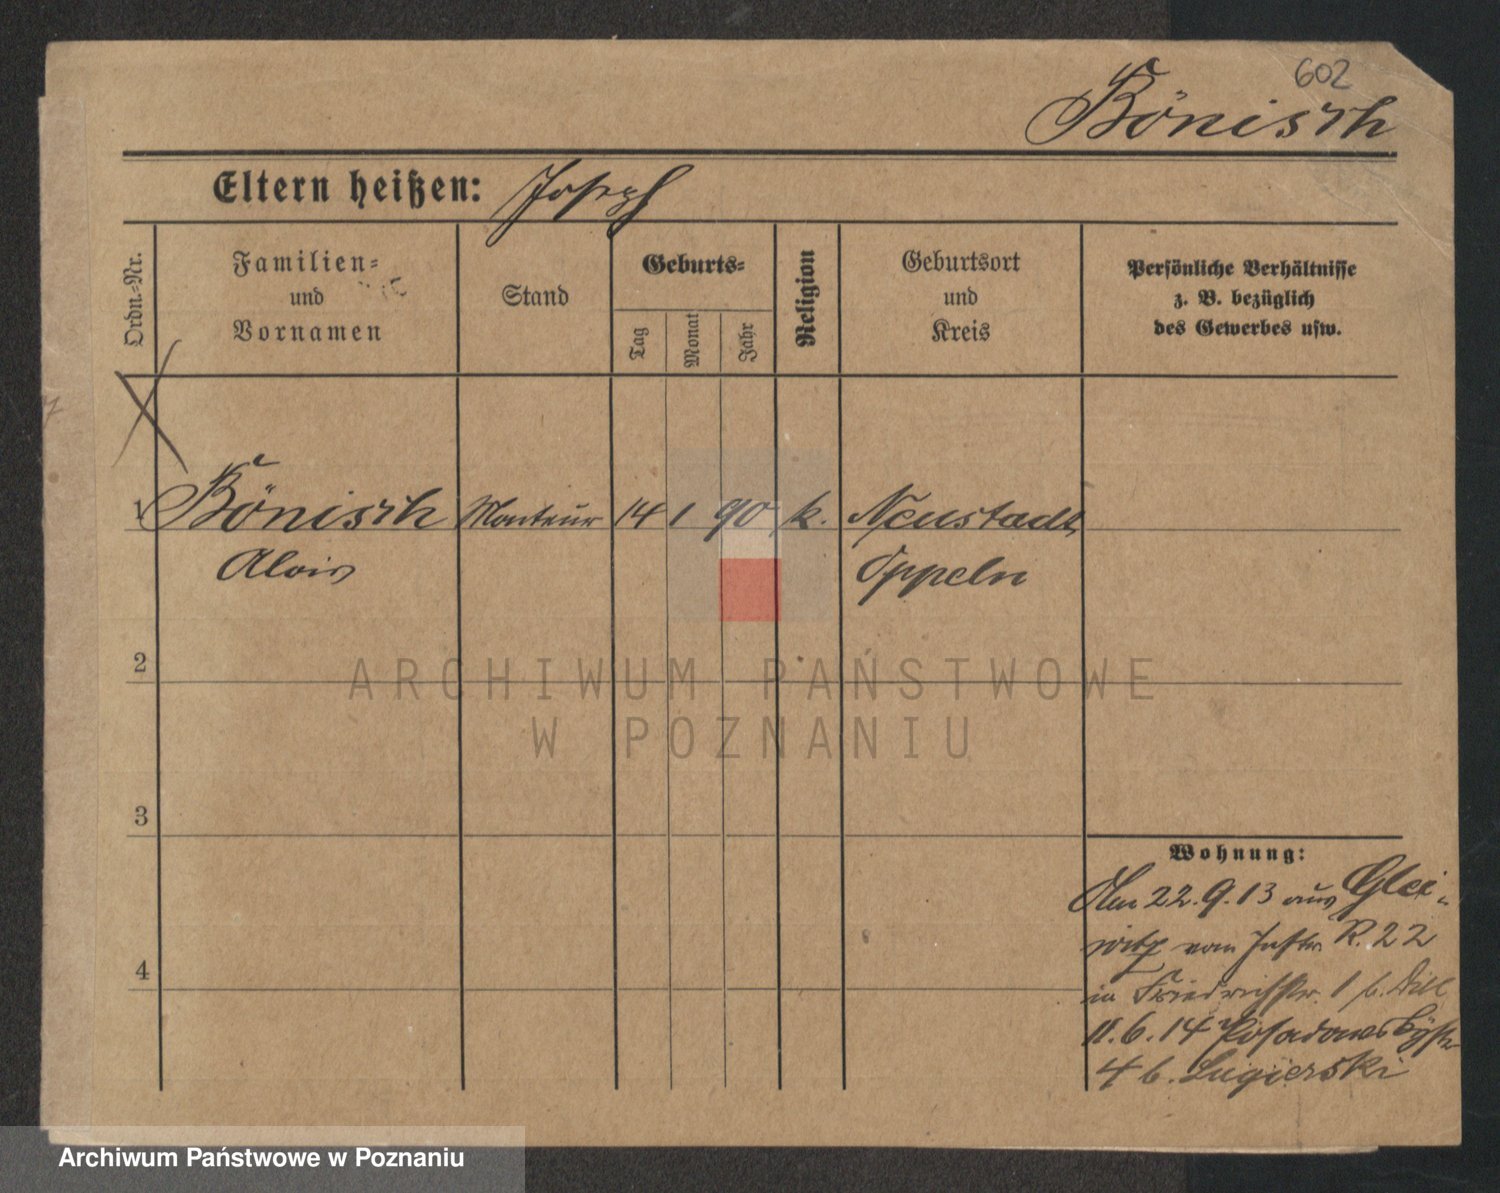 602
Bönisch
Eltern heißen: Joseph
Ordn.-Nr.
Familien-
und
Vornamen
Stand
Geburts-
Tag
Monat
Jahr
Religion
Geburtsort
und
Kreis
Persönliche Verhältnisse
z. B. bezüglich
des Gewerbes usw.
1 Bönisch Monteur 14 1 90 k. Neustadt
Alois Oppeln
2
ARCHIWUM PAŃSTWOWE
W POZNANIU
3
Wohnung:
Am 22.9.13 aus Glei-
witz vom Inftr. R. 22
in Friedrichstr. 1 b. Dill
11.6.14
4 b. Lugierski
4
Archiwum Państwowe w Poznaniu